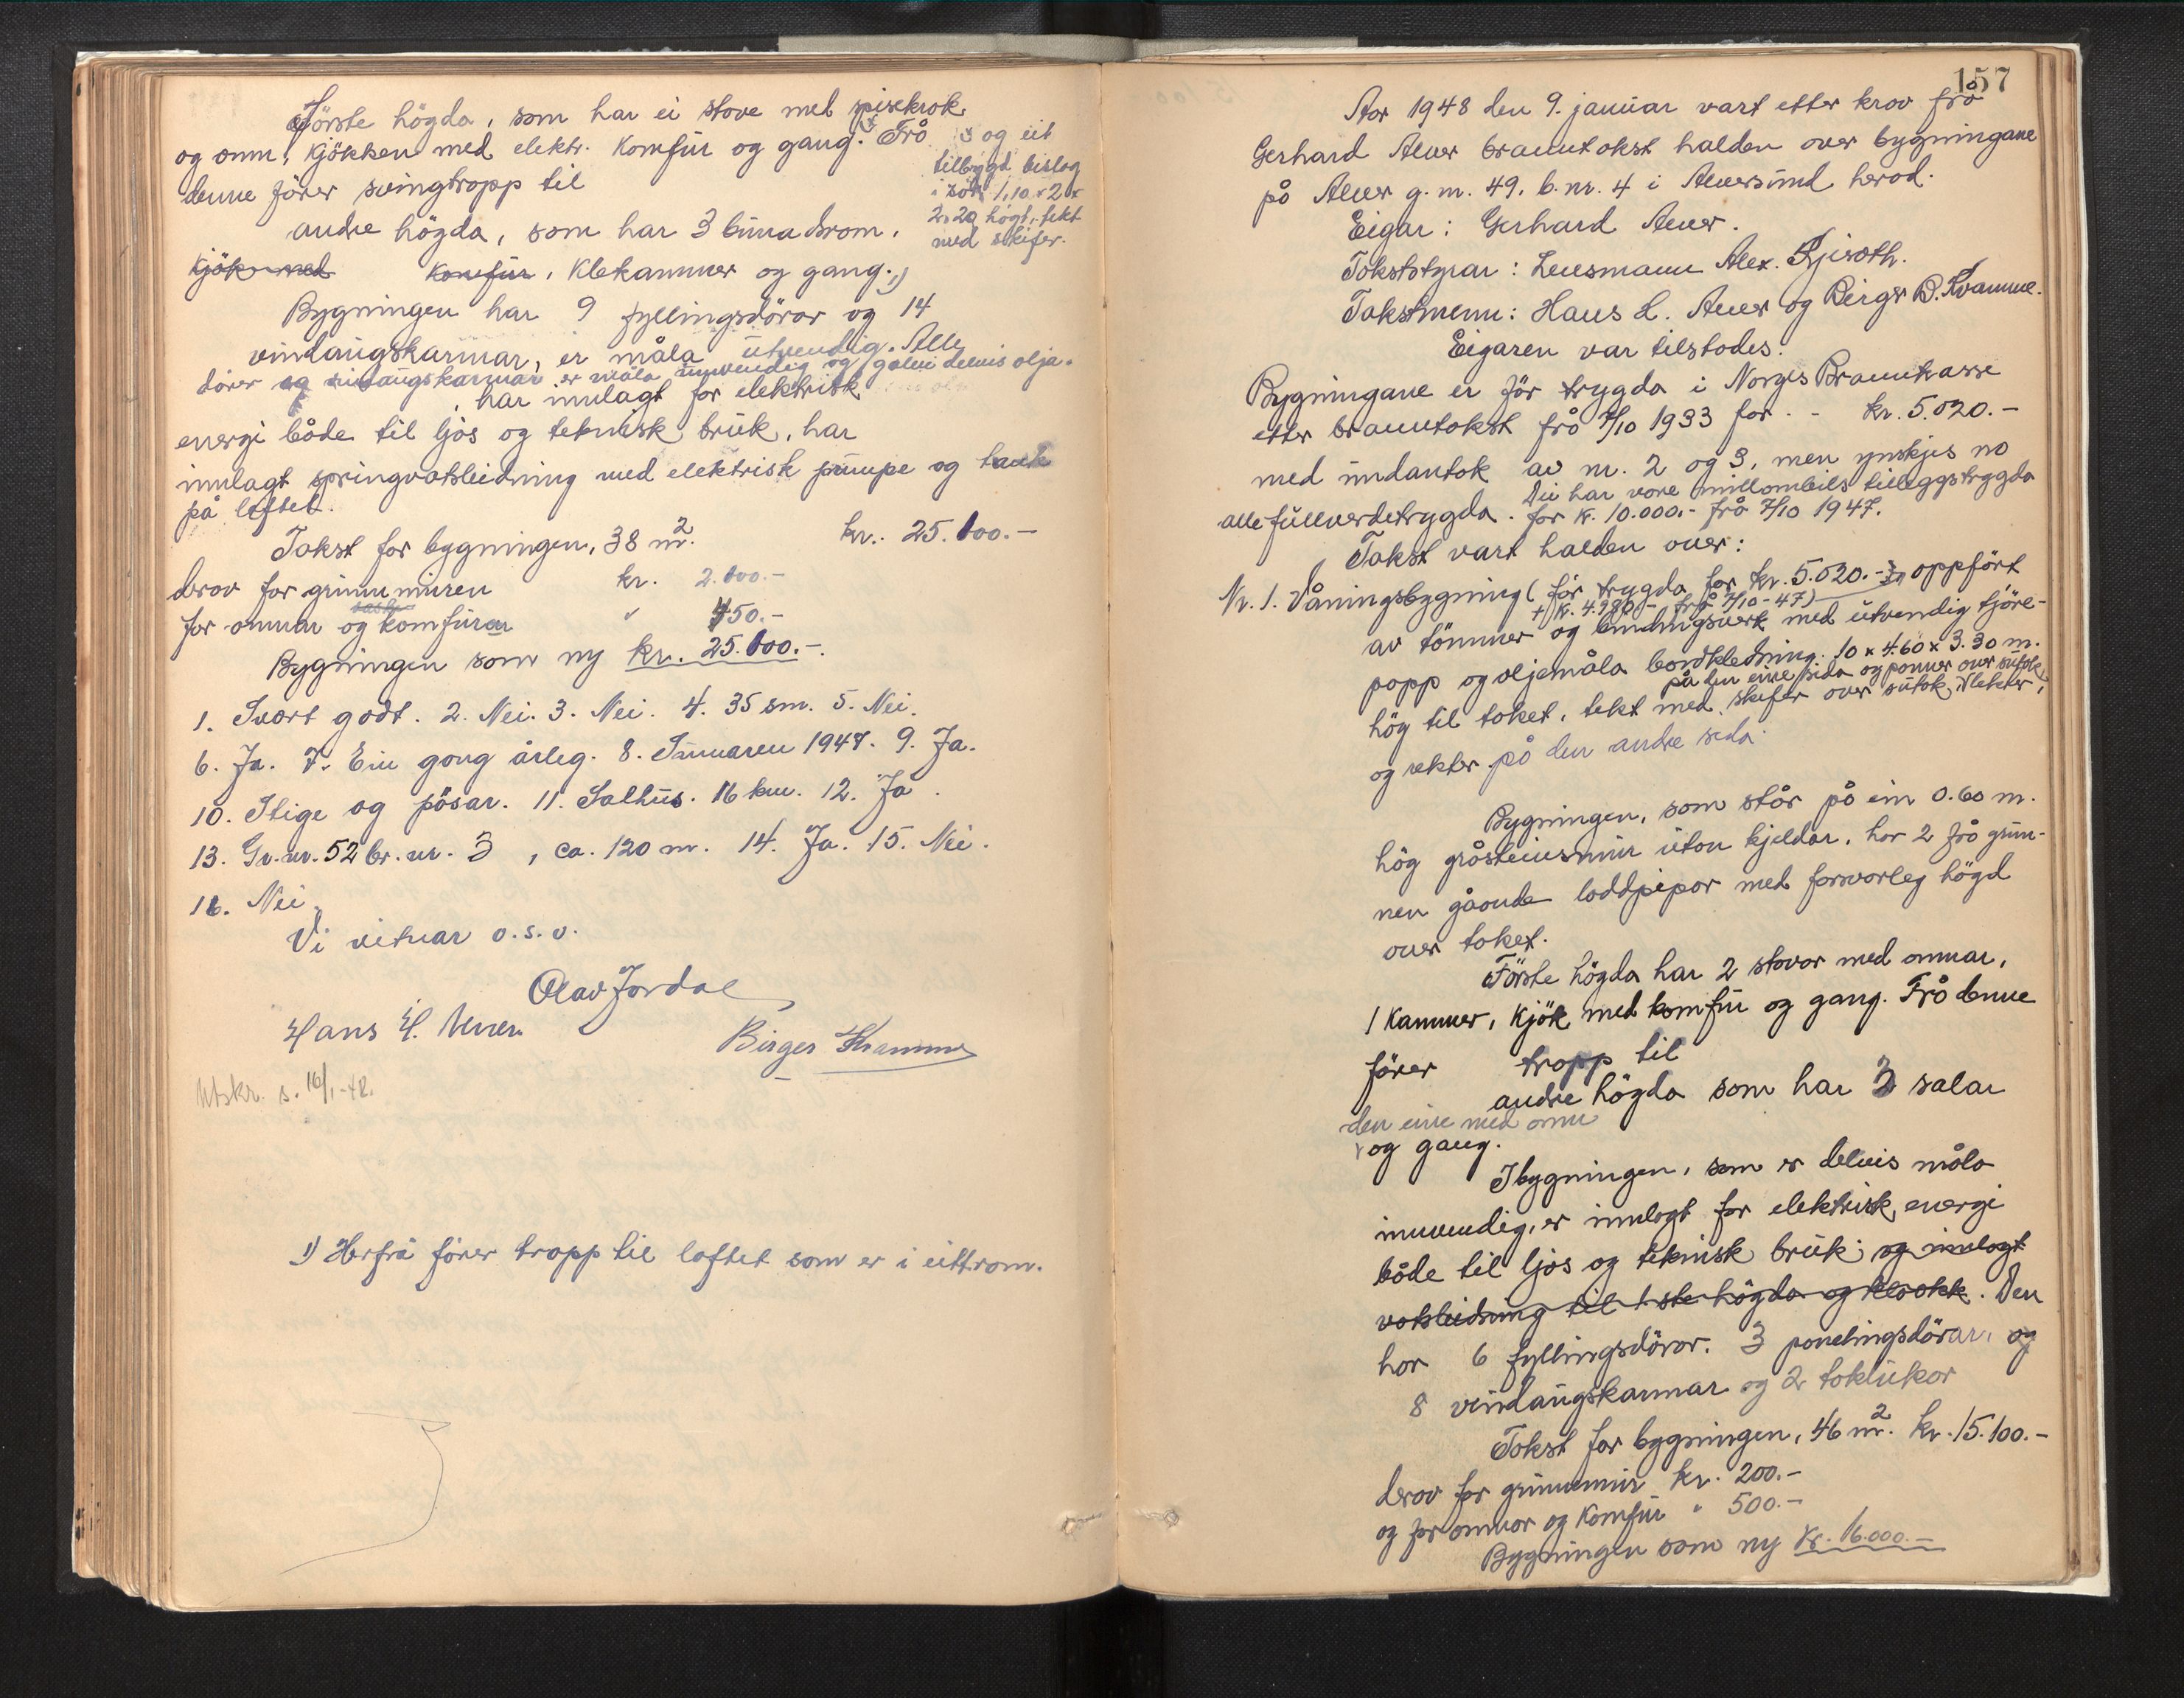 Förste högda, som har ei stove med spisekrok
og omn, kjökken med elektr. komfür og gang. x Frå
denne förer svingtropp til
x og eit
tilbygd bislag
i sör 1,10 x 2 x
2.20 högt, tekt
med skifer.
andre högda, som har 3 buradsrom,
kjök med komfür, klekammer og gang. 1)
Bygningen har 9 fyllingsdörar og 14
vindaugskarmar, er måla utvendig. Alle
dörer og vindaugskarmar er måla innvendig og golvi delvis olja.
har innlagt for elektrisk
energi både til ljos og teknisk bruk, har
innlagt springvatsleidning med elektrisk pumpe og tank
på loftet.
Takst for bygningen, 38 m². kr. 25.100.-
derav for grunnmuren kr. 2.100.-
for omnar og komfürar " 450.-
Bygningen som ny kr. 25.100.-.
1. Svært godt. 2. Nei. 3. Nei. 4. 35 sm. 5. Nei.
6. Ja. 7. Ein gong årleg. 8. Januaren 1947. 9. Ja.
10. Stige og pösar. 11. Salhus. 16 km. 12. Ja.
13. Gr. nr. 52 br. nr. 3, ca. 120 m. 14. Ja. 15. Nei.
16. Nei.
Vi vitnar o.s.v.
Olav Jordal
Hans H. Alver
Birger Kvamme
Utskr. s. 16/1-48.
1) Herfrå förer tropp til loftet som er i eitt rom.
157
Aar 1948 den 9. januar vart etter krav frå
Gerhard Alver branntakst halden over bygningane
på Alver g. nr. 49, b. nr. 4 i Alversund herad.
Eigar: Gerhard Alver.
Takststyrar: Lensmann Alex. Gjisoth.
Takstmenn: Hans L. Alver og Birger D. Kvamme.
Eigaren var tilstades.
Bygningane er för trygda i Norges Brannkasse
etter branntakst frå 7/10 1933 for - - kr. 5.020.-
med undantak av nr. 2 og 3, men ynskjes no
alle fullverdetrygda. Dei har vore millombils tilleggstrygda
for kr. 10.000.- frå 7/10 1947.
Takst vart halden over:
Nr. 1. Våningsbygning (för trygda for kr. 5.020.- oppfört
+ kr. 4.980.- frå 7/10-47)
av tömmer og bindingsverk med utvendig tjöre-
papp og oljemåla bordkledning. 10 x 4.60 x 3.30 m.
på den eine sida og panner over sutak
hög til taket, tekt med skifer over sutak, lekter,
og rekter på den andre sida.
Bygningen, som står på ein 0.60 m.
hög gråsteinsmur utan kjeldar, har 2 frå grun-
nen gåande loddpipar med forsvarleg högd
over taket.
Förste högda har 2 stovar med omnar,
1 kammer, kjök med komfür og gang. Frå denne
förer tropp til
andre högda som har 3 salar
den eine med omn
v og gang.
I bygningen, som er delvis måla
innvendig, er innlagt for elektrisk energi
både til ljos og teknisk bruk og innlagt
vatsleidning til 1ste högda og klosett. Den
har 6 fyllingsdörar, 3 panelingsdörar, og
8 vindaugskarmar og 2 taklukar
Takst for bygningen, 46 m². kr. 15.100.-
derav for grunnmur kr. 200.-
og for omnar og komfür " 500.-
Bygningen som ny kr. 16.000.-